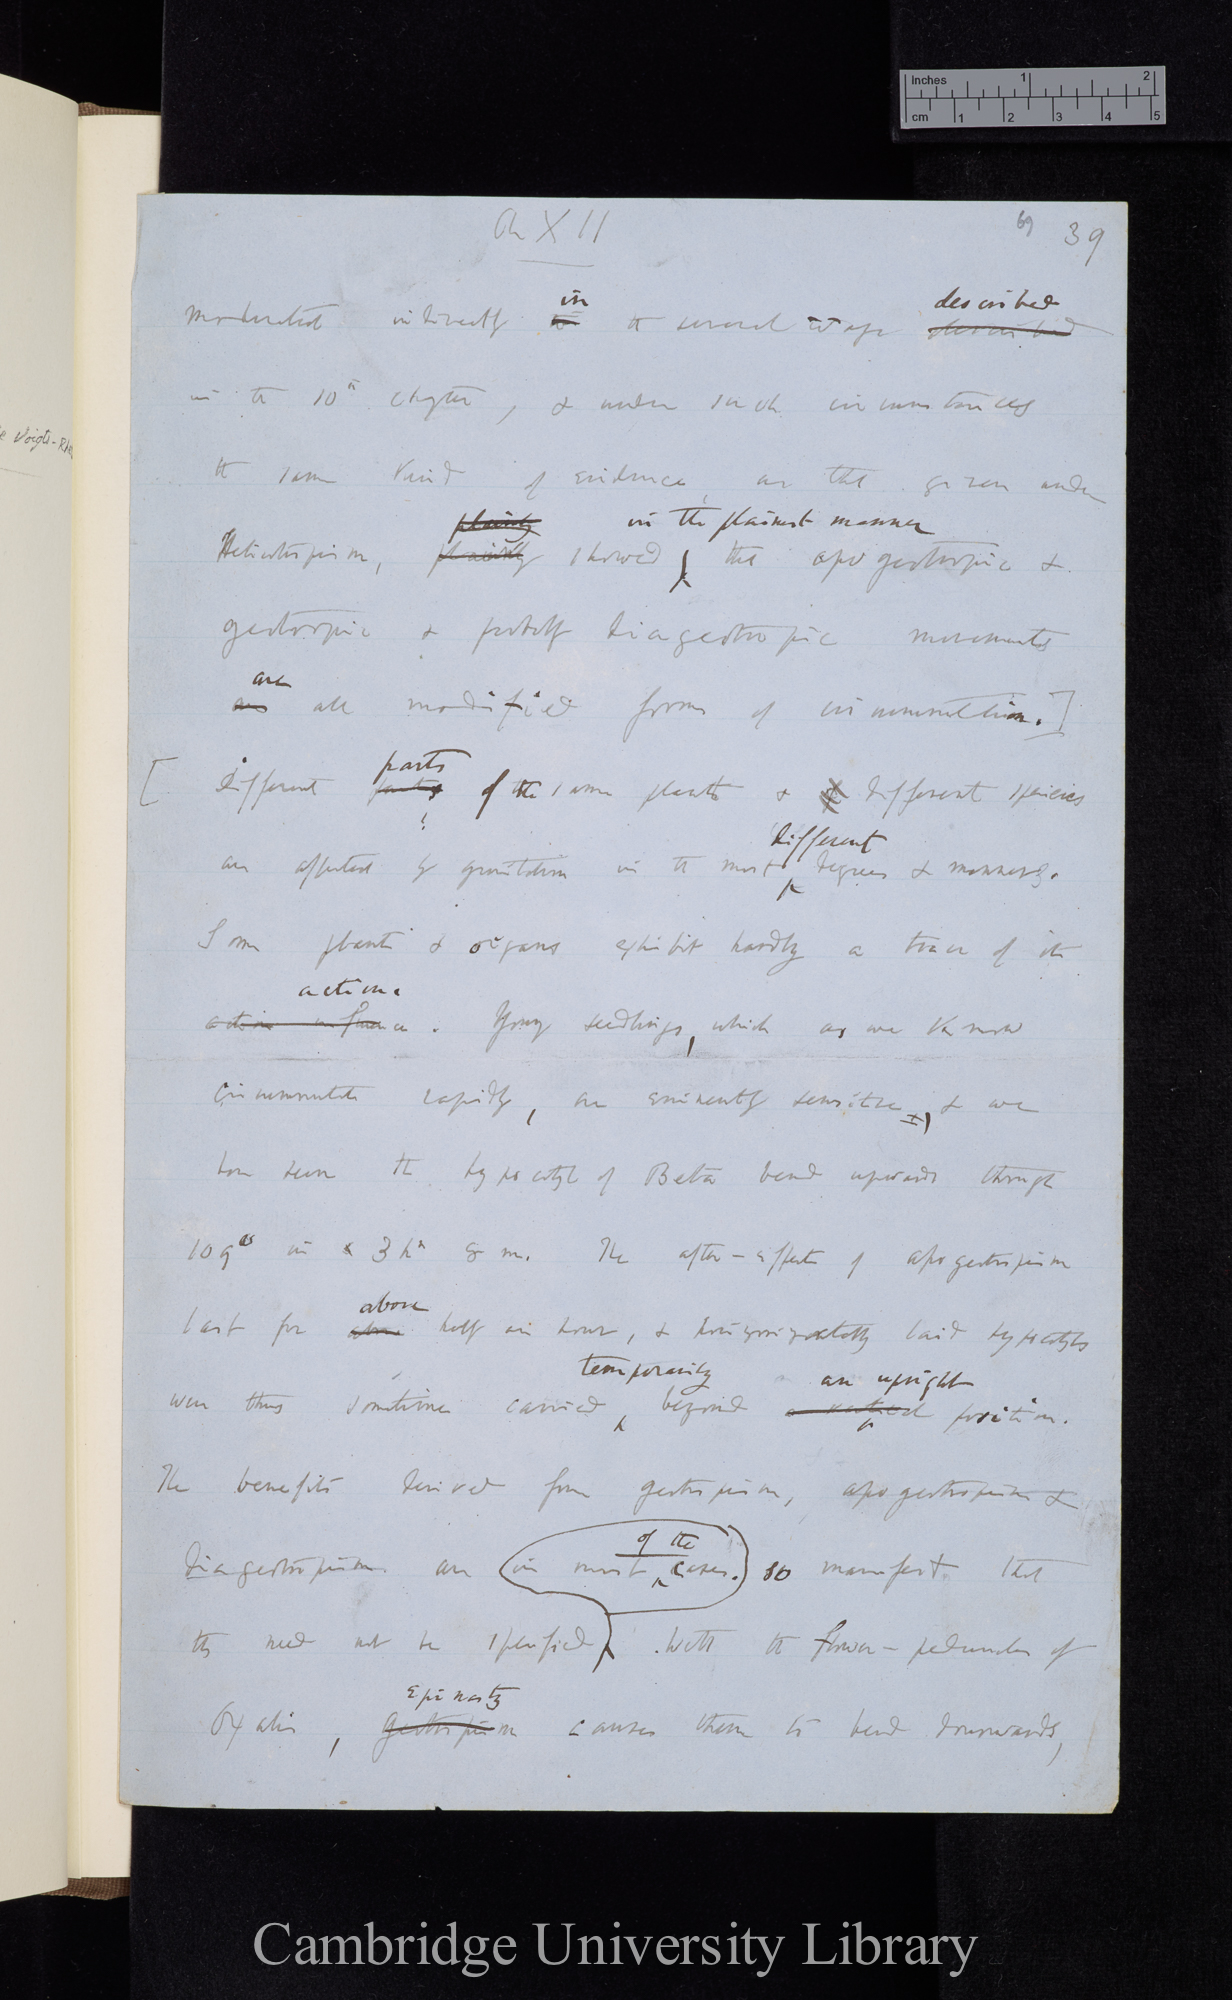 Inches 1 2
cm 1 2 3 4 5
Ch XII
69 39
in described
moderated indirectly to the several ways described
in the 10th chapter, & under such circumstances
the same kind of evidence, as that given under
plainly in the plainest manner
Heliotropism, plainly showed that apogeotropic &
geotropic & probably diageotropic movements
are
are all modified forms of circumnutation.]
parts
[Different parts of the same plant & different species
different
are affected by gravitation in the most degrees & manners.
Some plants & organs exhibit hardly a trace of its
action.
action influence. Young seedlings, which as we know
circumnutate rapidly, are eminently sensitive, & we
have seen the hypocotyl of Beta bend upwards through
109° in 3 hr 8 m. The after-effects of apogeotropism
above
last for above half an hour, & horizontally laid hypocotyls
temporarily an upright
were thus sometimes carried beyond a vertical position.
The benefits derived from geotropism, apogeotropism &
of the
diageotropism are in most cases. so manifest that
they need not be specified. With the flower-peduncles of
epinasty
Oxalis, geotropism causes them to bend downwards,
Cambridge University Library